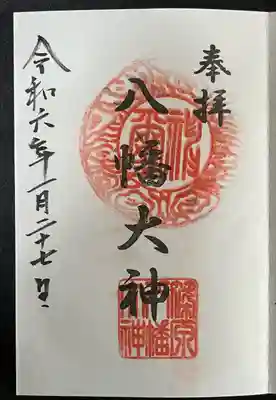 奉拝
八幡大神
令和六年一月二十七日